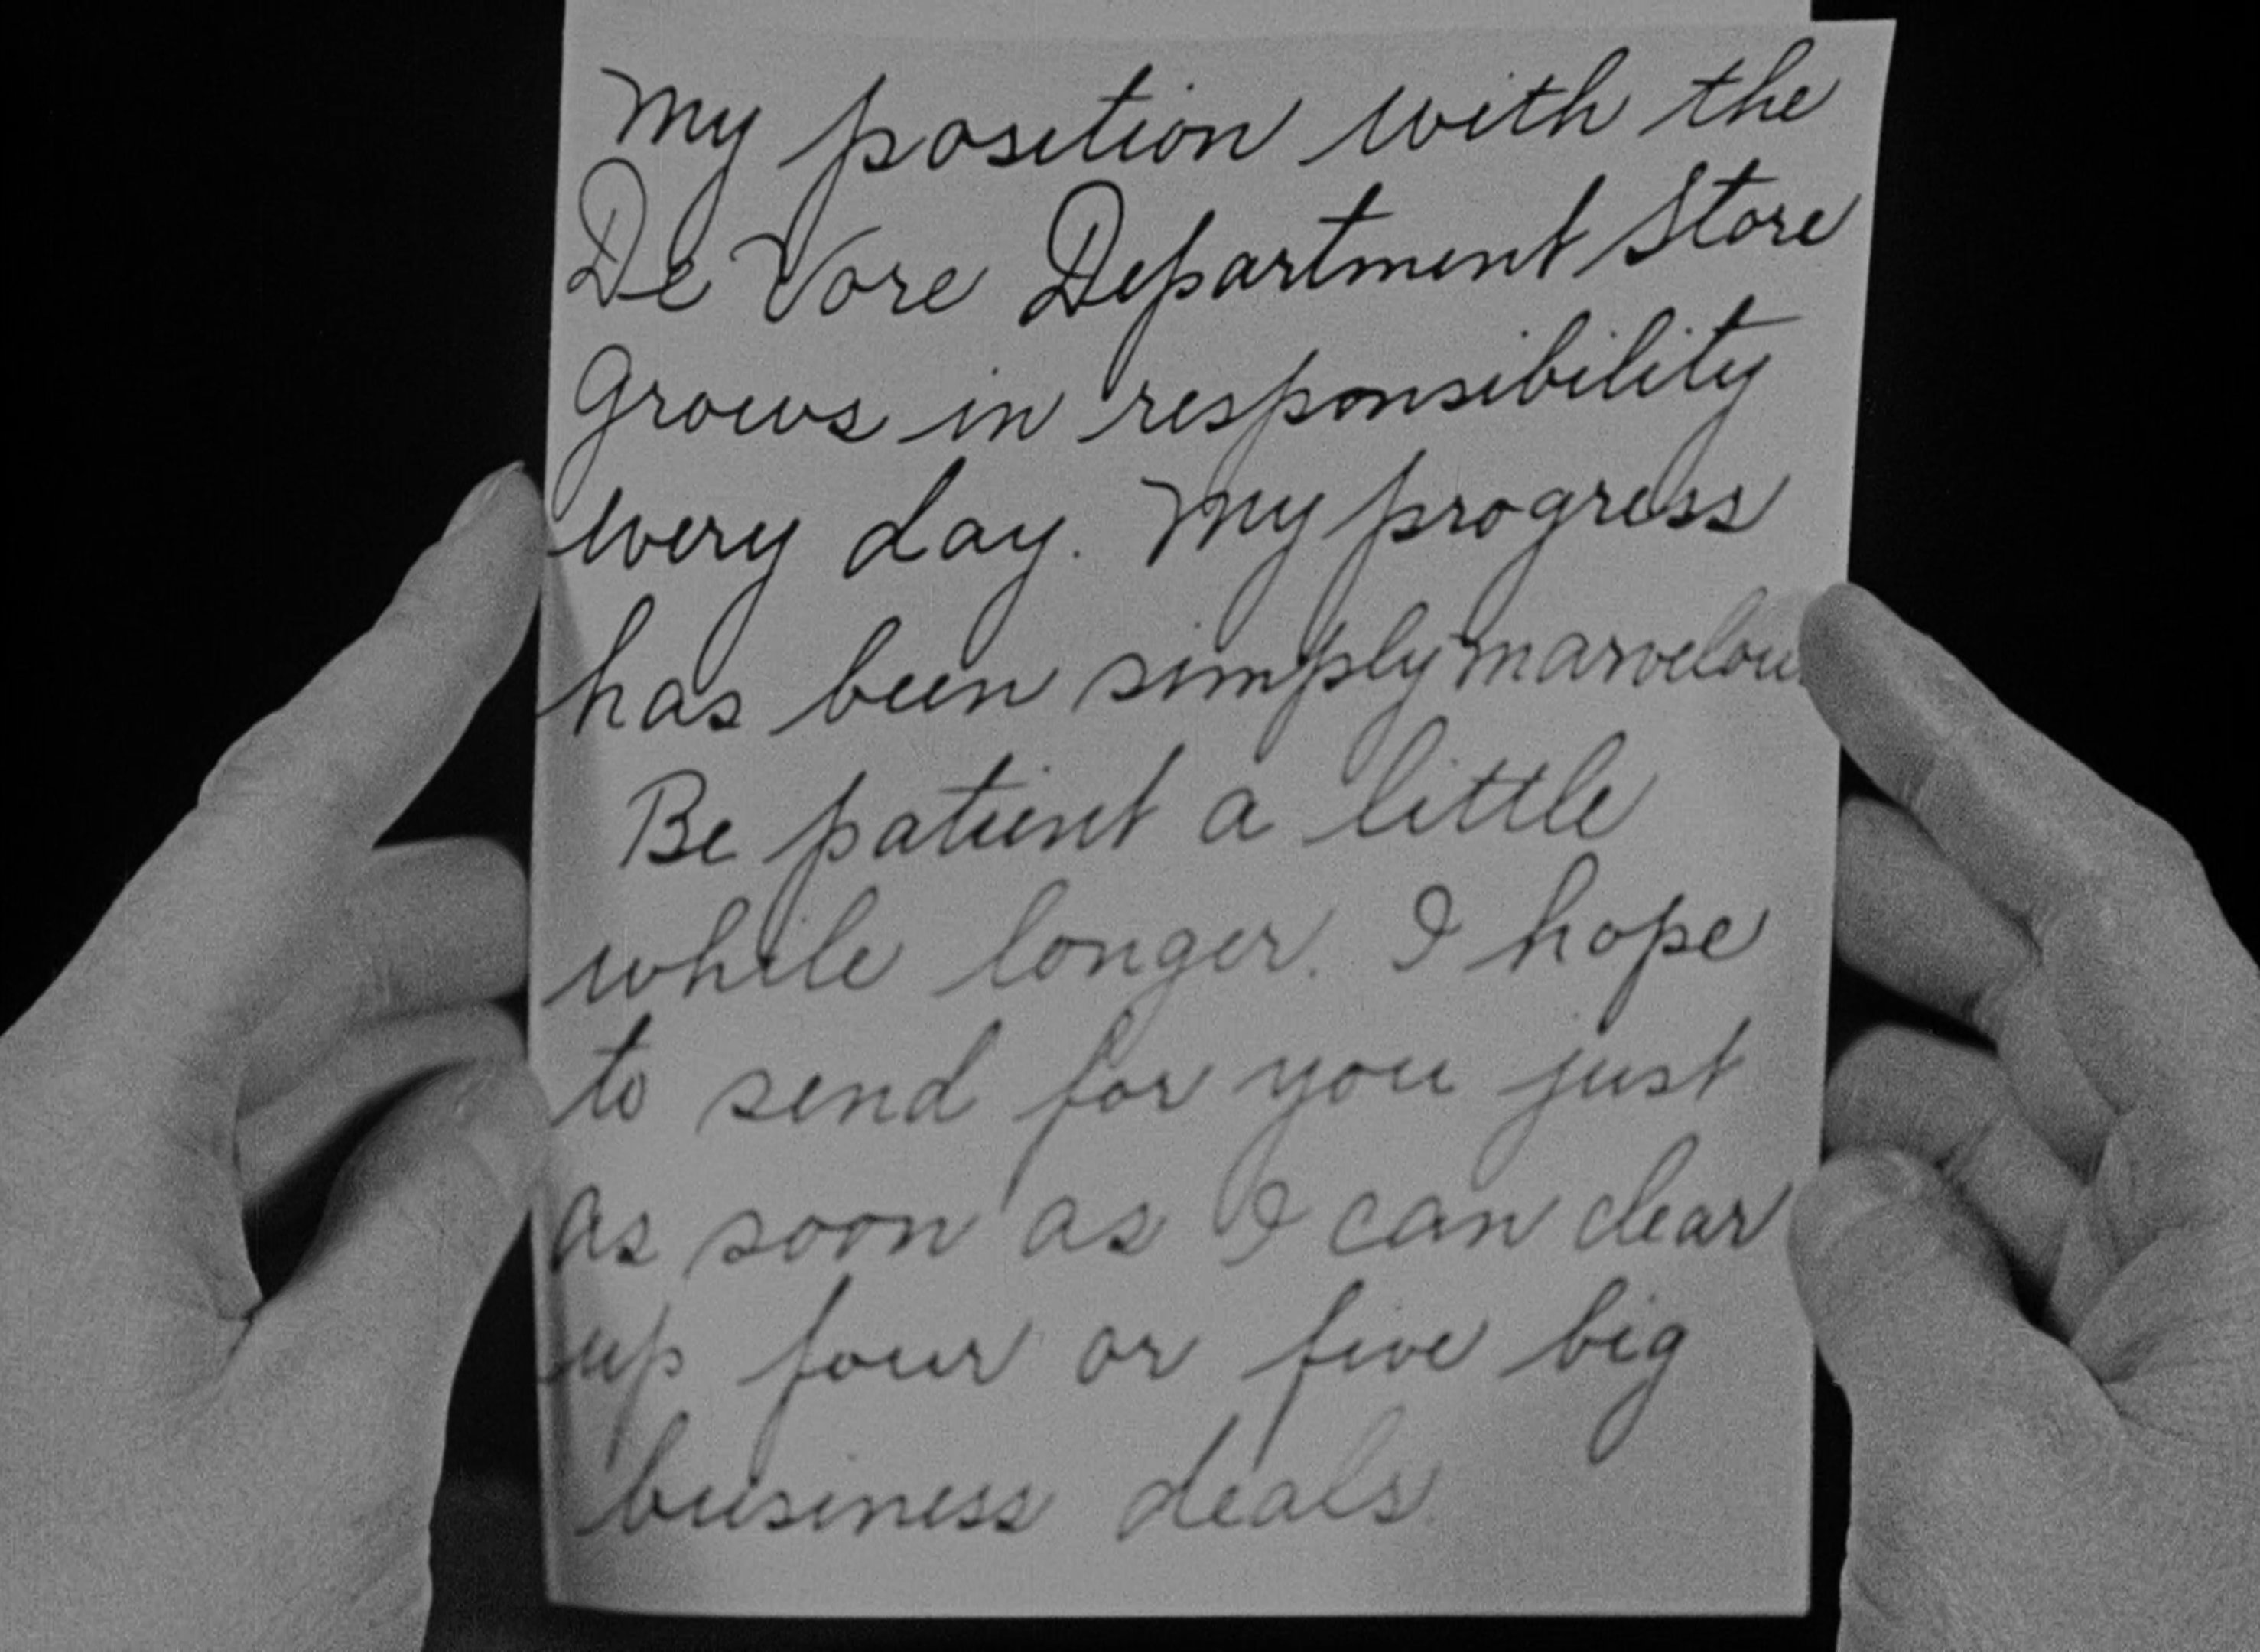 My position with the
De Vore Department Store
grows in responsibility
every day. My progress
has been simply marvelous
Be patient a little
while longer. I hope
to send for you just
as soon as I can clear
up four or five big
business deals.